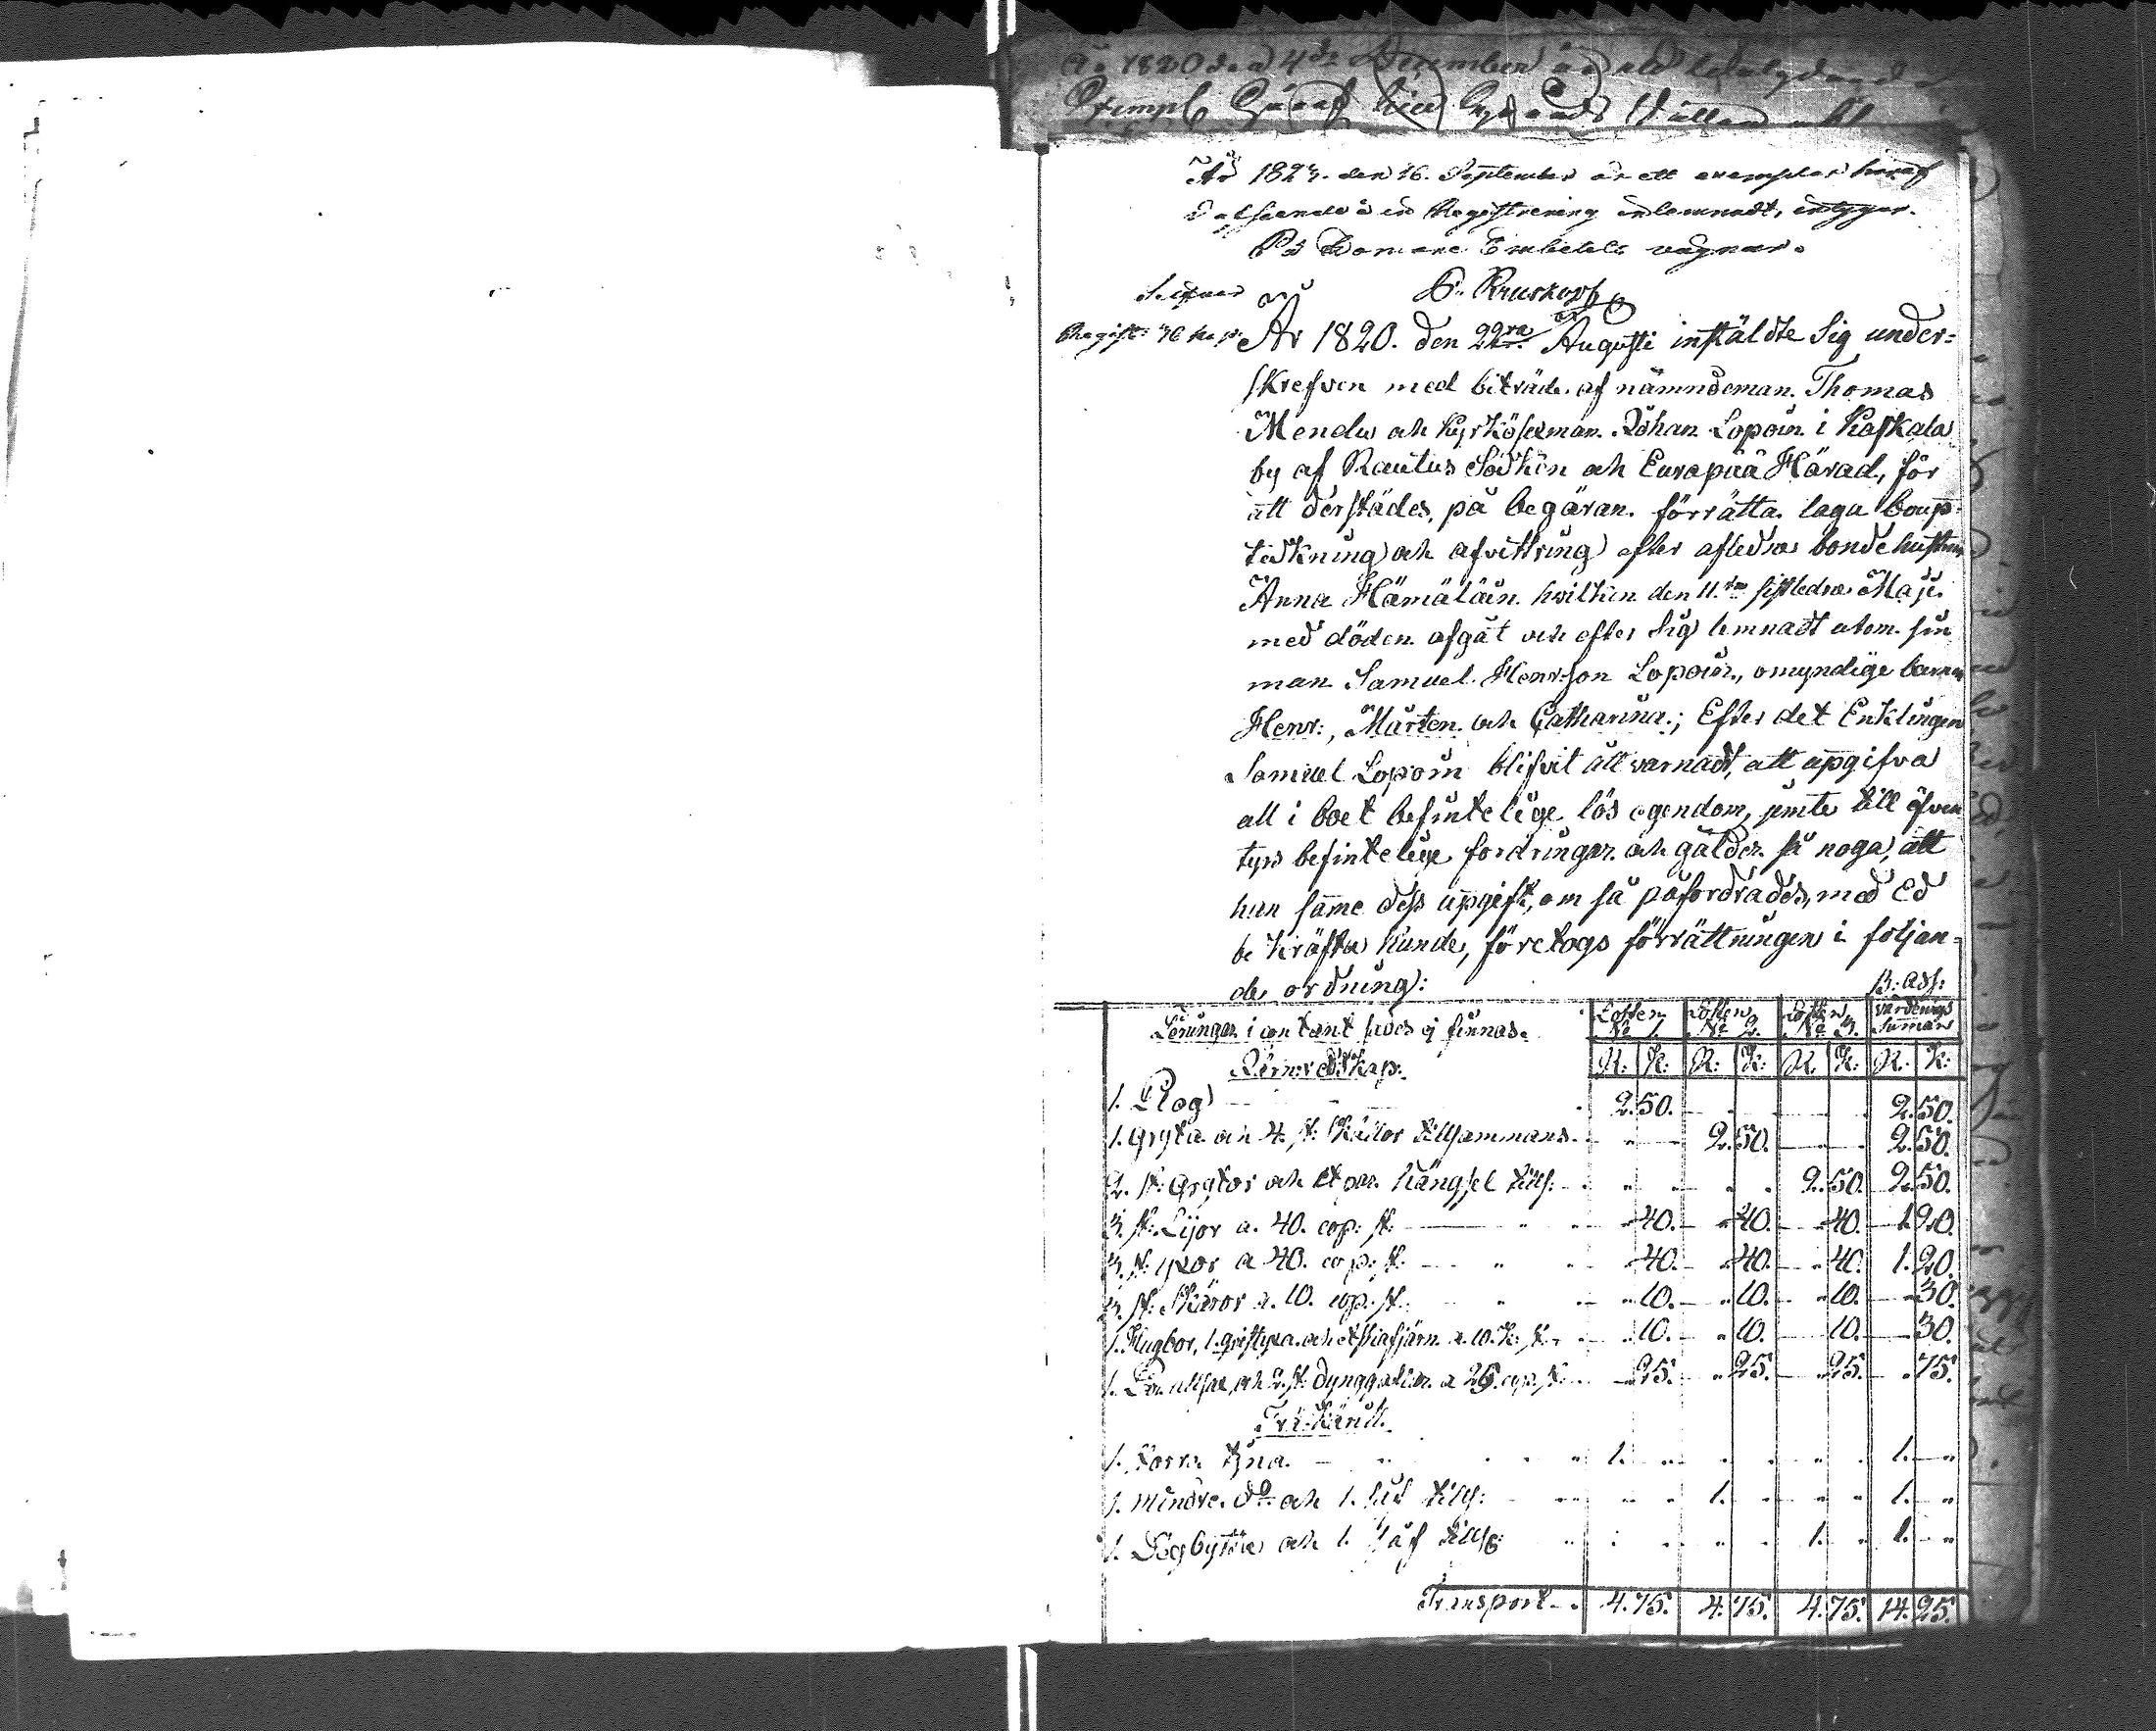 År 1823. den 16. September är ett exemplar häraf
Registrering inlemnadt, intygar.
På Domare Embetets vägnar.
Kruskopf
År 1820. den 22ra Augusti instäldte Sig under-
skrefven med biträde af nämndeman Thomas
Mendu och Kyrkosexman Johan Lopoin i Kaskala
by af Rautus Sockn och Euräpää Härad, för
att derstädes, på begäran förrätta laga boup-
tekning och afvittring efter afledne bondehustrun
Anna Hämäläin hvilken den 11.te sistledne Maji
med döden afgåt och efter sig lemnadt utom sin
man Samuel Henrsson Lopoin, omyndige barnen
Henr:, Mårten och Catharina; Efter det Enklingen
Samuel Lopoin blifvit åtvarnadt, att upgifva
all i boet befintelige lös egendom, jemte till äfven
tyrs befintelige fordringar och gälder så noga, att
han samme dess upgift, om så påfordrades, med Ed
bekräfta kunde, företogs förrättningen i följan-
de ordning:
B: Ass:
Löningar i contant sades ej finnas. Lotten No 1. Lotten No 2. Lotten No 3. Värderings Summan
Jernredskap. R: K: R: K: R K: R. K:
1. Plog 2.50. 2.50.
1. Gryta och 4. st: Skålor tillsammans 2.50. 2.50.
2. st: Grytor och et par hängsel tills: 2.50. 2.50.
3. st: Lijor a. 40. cop: st. 40. 40. 40. 1.20.
3. st: yxor a 40. cop: st. 40. 40. 40. 1.20.
3. st: Skäror a. 10. cop: st. 10. 10. 10. 30.
1. Nugbor, 1. a. 10. K: st. 10. 10. 10. 30.
1. och 2. st. dynggafflar a 25. cop: st. 25. 25. 25. 75.
Träkäril.
1. Större Tyna 1. 1.
1. mindre do och 1. tills: 1. 1.
1. Degbytta och 1. tills: 1. 1.
Transport 4.75. 4.75. 4.75. 14.25.